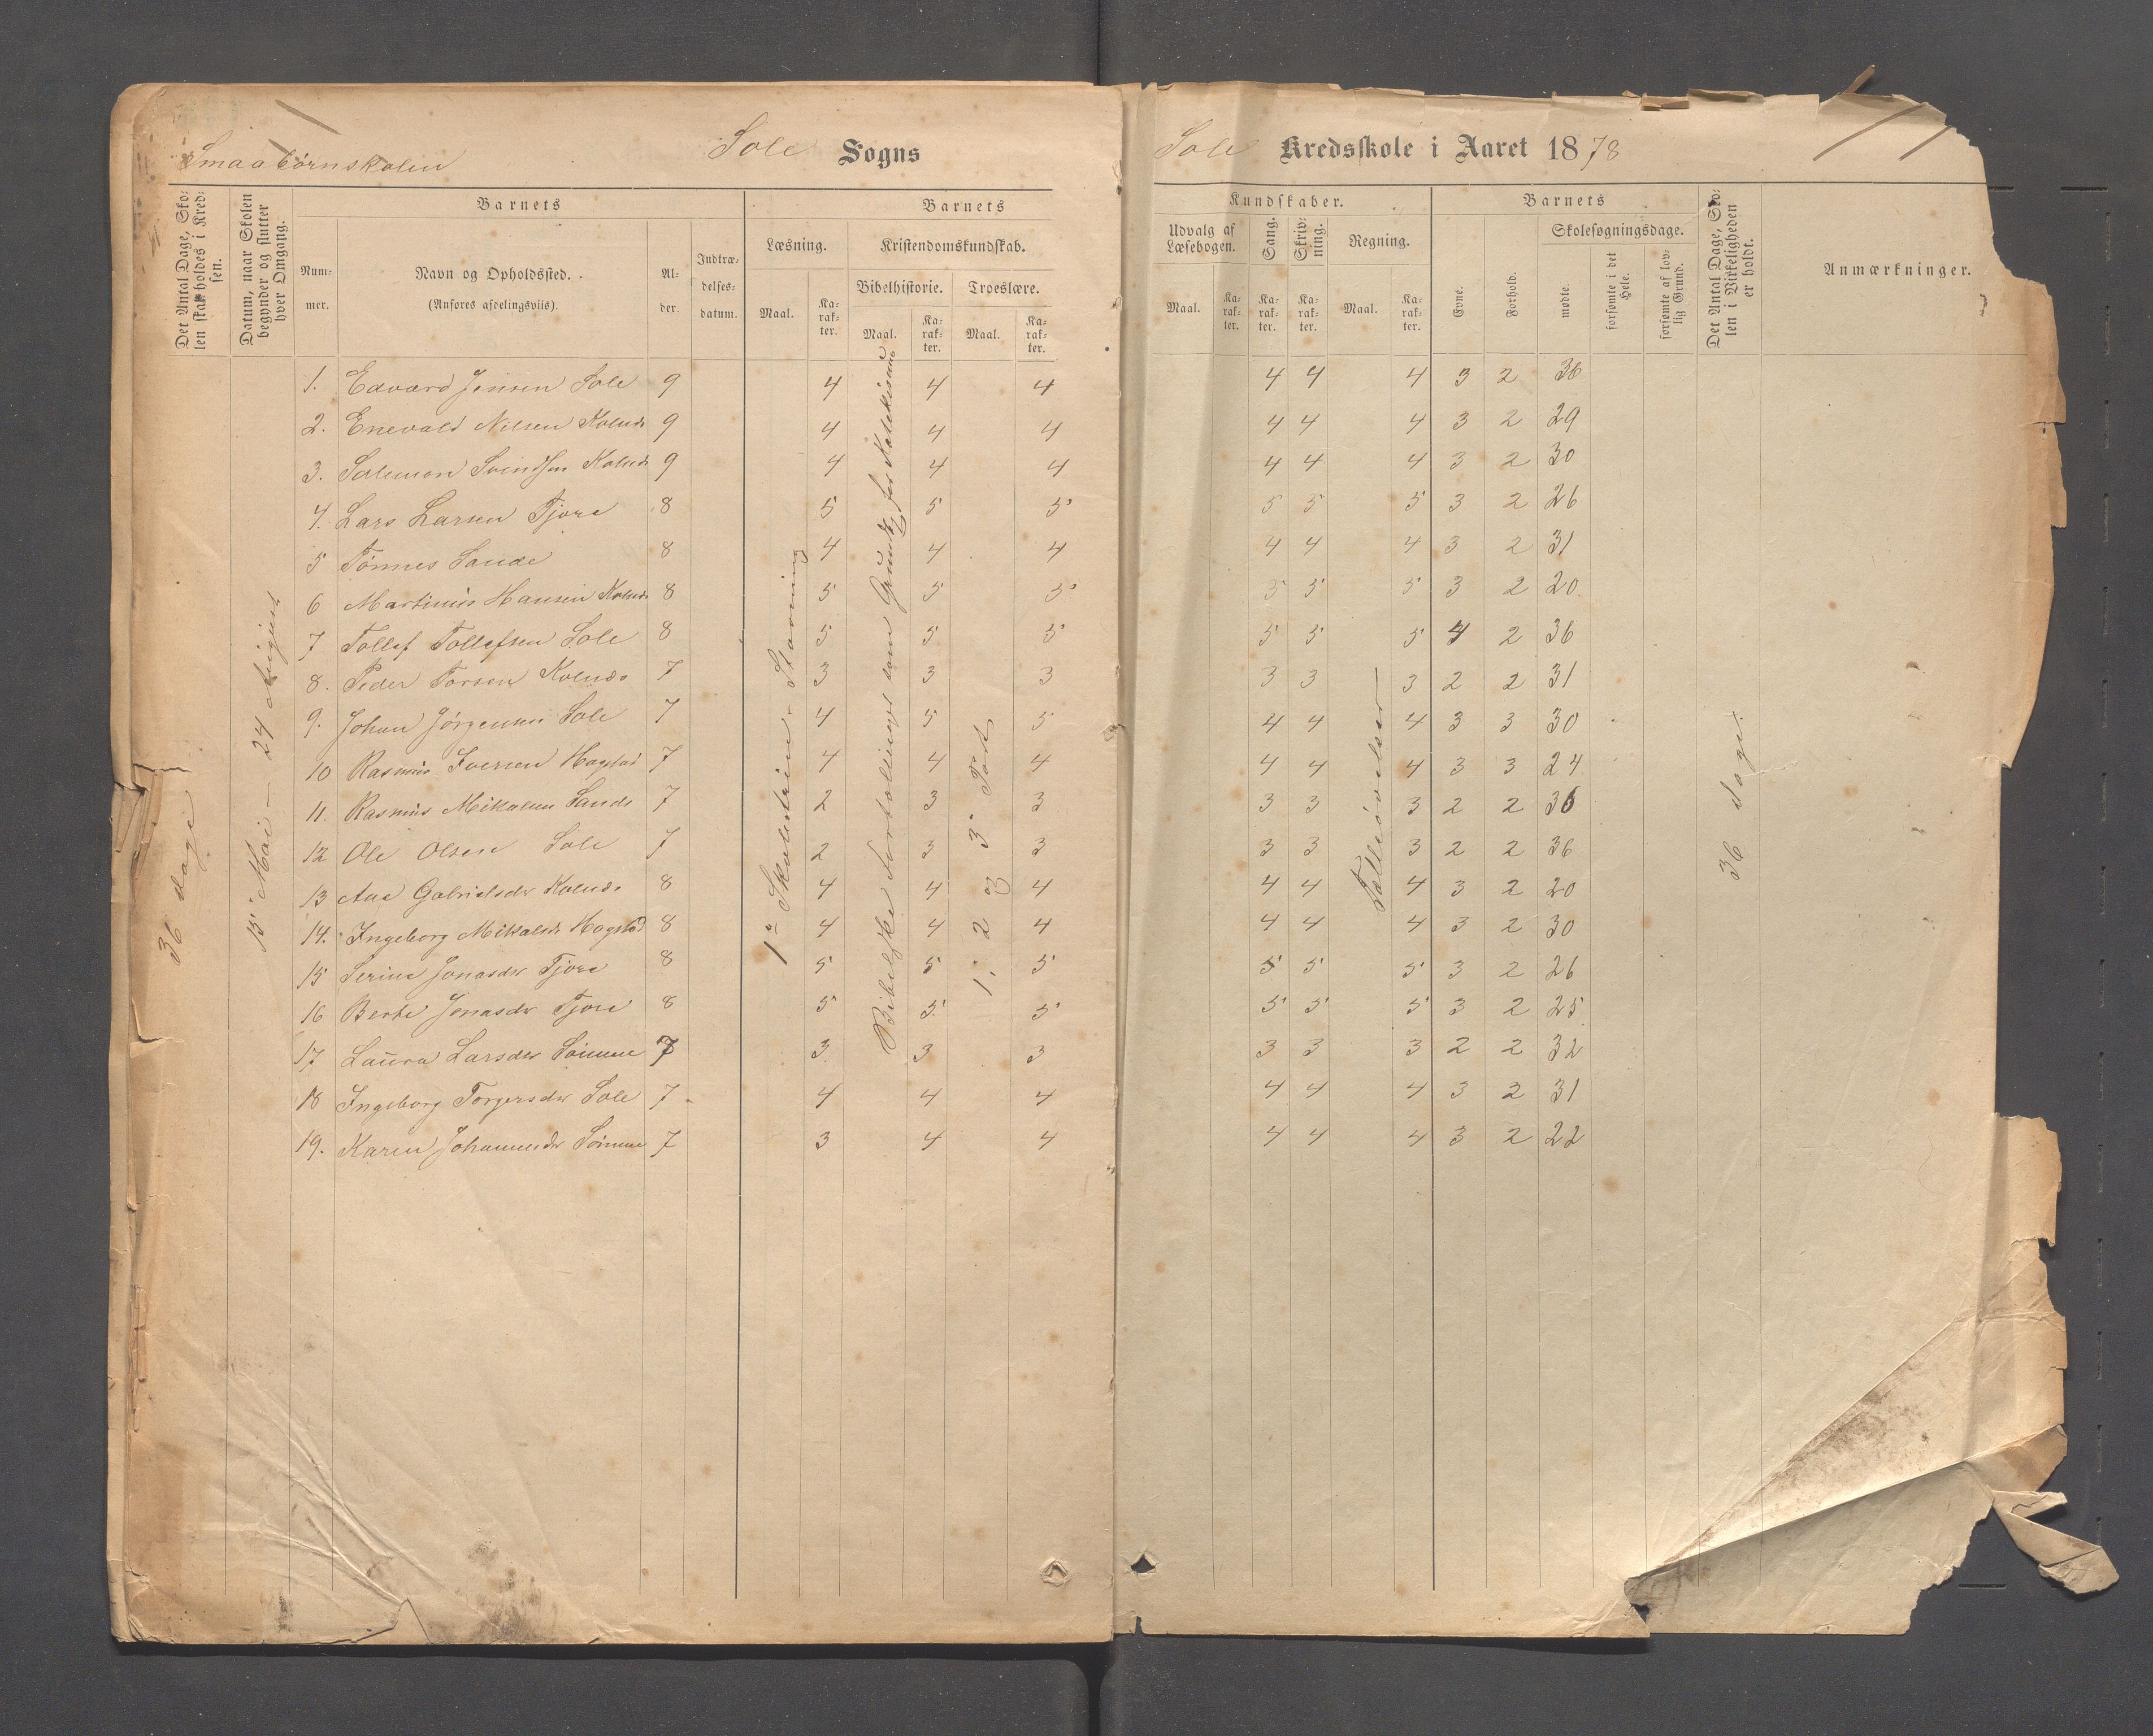 Smaabörnskolen
Sole Sogns
Sole Kredsskole i Aaret 1878
Det Antal Dage, Skolen skal holdes i Kredsen.
Datum, naar Skolen begynder og slutter hver Omgang.
Barnets
Nummer.
Navn og Opholdssted.
(Anføres afdelingsviis).
Alder.
Indtrædelsesdatum.
Barnets
Kundskaber.
Læsning.
Maal.
Karakter.
Kristendomskundskab.
Bibelhistorie.
Maal.
Karakter.
Troeslære.
Maal.
Karakter.
Udvalg af Læsebogen.
Maal.
Karakter.
Sang.
Karakter.
Skrivning.
Karakter.
Regning.
Maal.
Karakter.
Barnets
Evne.
Forhold.
Skolesøgningsdage.
mødte.
forsømte i det Hele.
forsømte af lovlig Grund.
Det Antal Dage, Skolen i Virkeligheden er holdt.
Anmærkninger.
36 dage
13de Mai – 24 August
1ste Skoletrin – Stavning
Bibelske Fortællinger som Grundl. for Katekisme
1, 2 og 3die Part
Tælleövelser
36 dage.
1. Edvard Jensen Sole 9 4 4 4 4 4 4 3 2 36
2. Enevald Nilsen Kolnæs 9 4 4 4 4 4 4 3 2 29
3. Salemon Svendsen Kolnæs 9 4 4 4 4 4 4 3 2 30
4. Lars Larsen Tjora 8 5 5 5 5 5 5 3 2 26
5 Tönnes Sande 8 4 4 4 4 4 4 3 2 31
6 Martinius Hansen Kolnæs 8 5 5 5 5 5 5 3 2 20
7 Tollef Tollefsen Sole 8 5 5 5 5 5 5 4 2 36
8. Peder Torsen Kolnæs 7 3 3 3 3 3 3 2 2 31
9. Johan Jörgensen Sole 7 4 5 5 4 4 4 3 3 30
10 Rasmus Iversen Hogstad 7 4 4 4 4 4 4 3 3 24
11. Rasmus Mikalsen Sande 7 2 3 3 3 3 3 2 2 36
12 Ole Olsen Sole 7 2 3 3 3 3 3 2 2 36
13 Ane Gabrielsdr Kolnæs 8 4 4 4 4 4 4 3 2 20
14. Ingeborg Mikalsdr Hogstad 8 4 4 4 4 4 4 3 2 30
15 Serine Jonasdr Tjora 8 5 5 5 5 5 5 3 2 26
16 Berte Jonasdr Tjora 8 5 5 5 5 5 5 3 2 25
17 Laura Larsdr Sömme 7 3 3 3 3 3 3 2 2 32
18 Ingeborg Torgersdr Sole 7 4 4 4 4 4 4 3 2 31
19. Karen Johannesdr Sömme 7 3 4 4 4 4 4 3 2 22